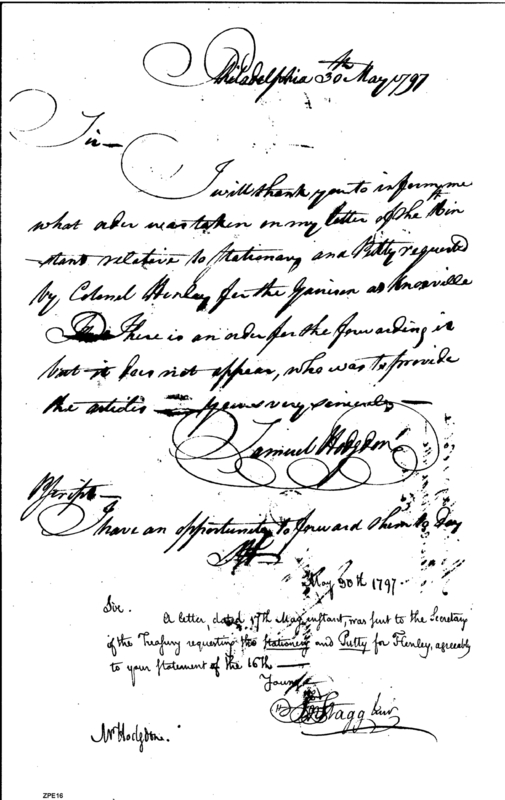 Philadelphia 30th May 1797
Sir —
I will thank you to inform me
what order was taken on my letter of the in
stant relative to stationary and Putty requested
by Colonel Henley for the Garrison at Knoxville
There is an order for the forwarding it
but it does not appear, who was to provide
the articles yours very sincerely
Samuel Hodgdon
PScript —
I have an opportunity to forward them to day
SH
May 30th 1797.
Sir.
A letter, dated 17th May instant, was sent to the Secretary
of the Treasury requesting the stationery and Putty for Henley, agreeably
to your statement of the 16th —
Yours
Jn Stagg Junr
Mr Hodgdon.
ZPE16